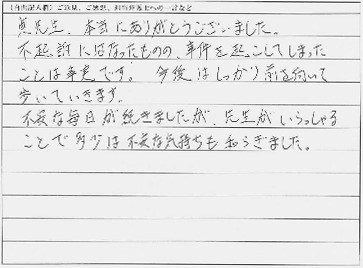 (自由記入欄)ご意見、ご感想、担当弁護士への一言など
貞先生、本当にありがとうございました。
不起訴にはなったものの、事件を起こしてしまった
ことは事実です。今後はしっかり前を向いて
歩いていきます。
不安な毎日が続きましたが、先生がいらっしゃる
ことで多少は不安な気持ちも和らぎました。